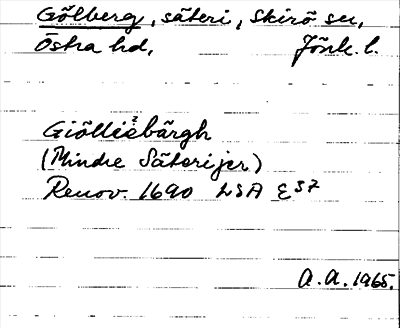 Gölberg, säteri, Skirö sn,
Östra hd, Jönk. l.
Giölliebärgh
(Mindre Säterijer)
Renov. 1690 LSA E 37
A.A. 1965.